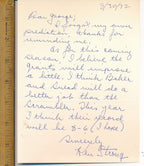 3/30/72
Dear George,
I forgot my own
prediction, thanks for
reminding me.
As for this coming
season, I believe the
giants will improve
a little. I think Baker
and Snead will do a
better job than the
Scrambler. This year
I think their record
will be 8-6 (I hope)
Sincerely
Ken Strong